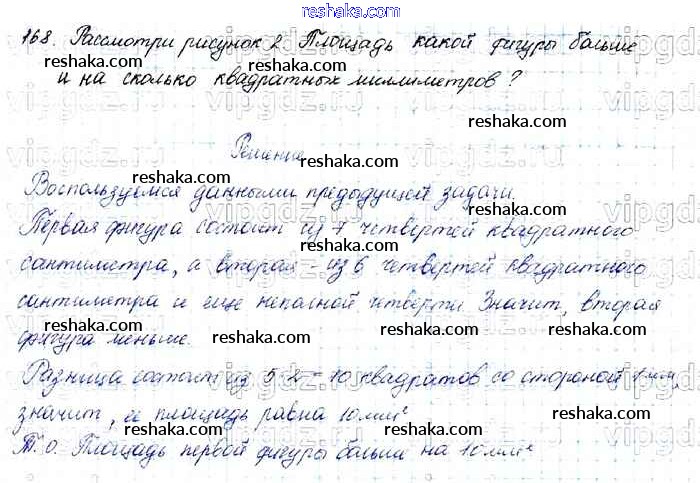 reshaka.com
168. Рассмотри рисунок 2. Площадь какой фигуры больше
и на сколько квадратных миллиметров?
reshaka.com
reshaka.com
Решение
Воспользуемся данными предыдущей задачи.
reshaka.com
Первая фигура состоит из 7 четвертей квадратного
сантиметра, а вторая - из 6 четвертей квадратного
reshaka.com
сантиметра и еще неполной четверти. Значит, вторая
фигура меньше.
reshaka.com
reshaka.com
reshaka.com
Разница состоит из 5·2 = 10 квадратов со стороной 1 мм,
значит, её площадь равна 10 мм²
reshaka.com
reshaka.com
Т. О. Площадь первой фигуры больше на 10 мм²
reshaka.com